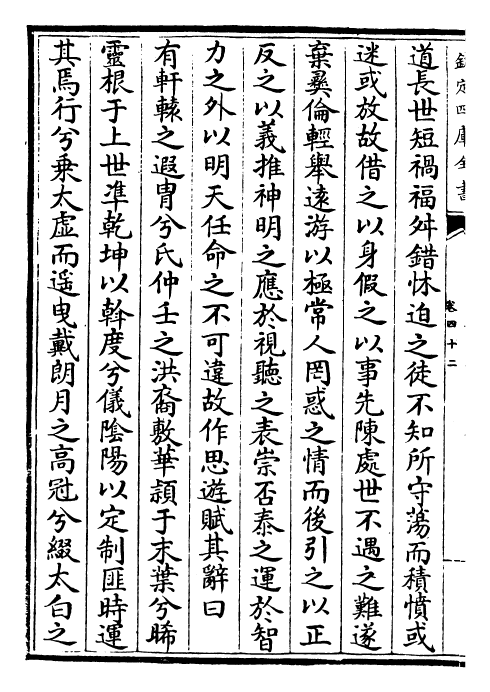 欽定四庫全書
卷四十二
道長世短禍福舛錯怵迫之徒不知所守蕩而積憤或
迷或放故借之以身假之以事先陳處世不遇之難遂
棄彞倫輕舉遠游以極常人罔惑之情而後引之以正
反之以義推神明之應於視聽之表崇否泰之運於智
力之外以明天任命之不可違故作思遊賦其辭曰
有軒轅之遐胄兮氏仲壬之洪裔敷華頴于末葉兮晞
靈根于上世凖乾坤以斡度兮儀陰陽以定制匪時運
其焉行兮乗太虚而遥曳戴朗月之高冠兮綴太白之